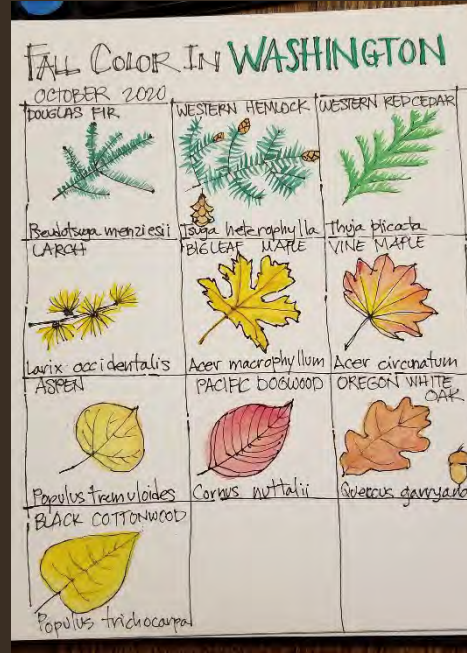 FALL COLOR IN WASHINGTON
OCTOBER 2020
DOUGLAS FIR
Pseudotsuga menziesii
WESTERN HEMLOCK
Tsuga heterophylla
WESTERN REDCEDAR
Thuja plicata
LARCH
Larix occidentalis
BIGLEAF MAPLE
Acer macrophyllum
VINE MAPLE
Acer circunatum
ASPEN
Populus tremuloides
PACIFIC DOGWOOD
Cornus nuttalii
OREGON WHITE
OAK
Quercus garryana
BLACK COTTONWOOD
Populus trichocarpa